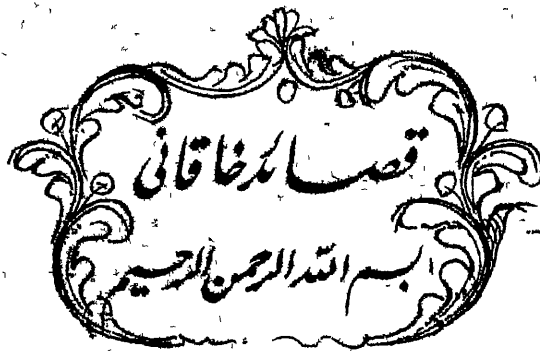 قصائد خاقانی
بسم الله الرحمن الرحیم